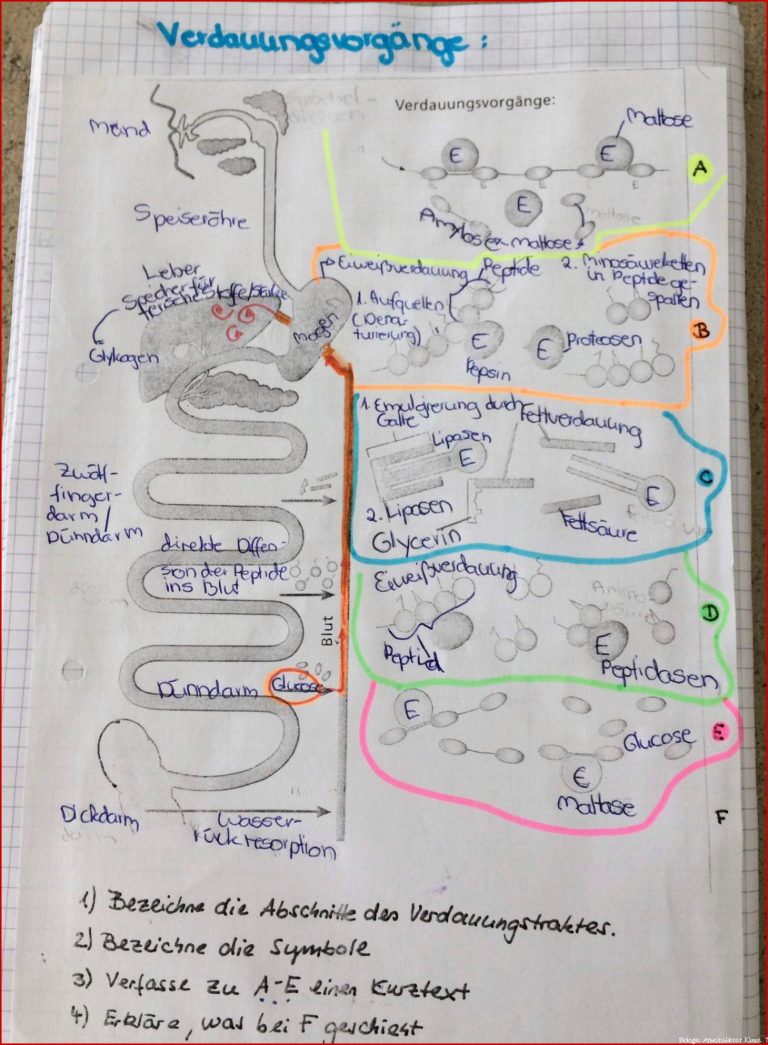 Verdauungsvorgänge:
Verdauungsvorgänge:
Mund
Speiseröhre
Leber
Speicher für
Glykogen
Magen
Zwölf-
finger-
darm/
Dünndarm
direkte Diffen-
sion der Peptide
ins Blut
Blut
Dünndarm
Glucose
Dickdarm
Wasser-
rückresorption
Maltase
E
E
E
maltose
A
Eiweißverdauung
Peptide
1. Aufquellen
(Dena-
turierung)
E
Pepsin
in Peptide ge-
spalten
E
Proteasen
B
1. Emulgierung durch
Galle
Fettverdauung
Lipasen
E
E
2. Lipasen
Glycerin
Fettsäure
C
Eiweißverdauung
Peptid
E
Peptidasen
D
E
Glucose
E
Maltase
E
F
1) Bezeichne die Abschnitte des Verdauungstraktes.
2) Bezeichne die Symbole
3) Verfasse zu A-E einen Kurztext
4) Erkläre, was bei F geschieht